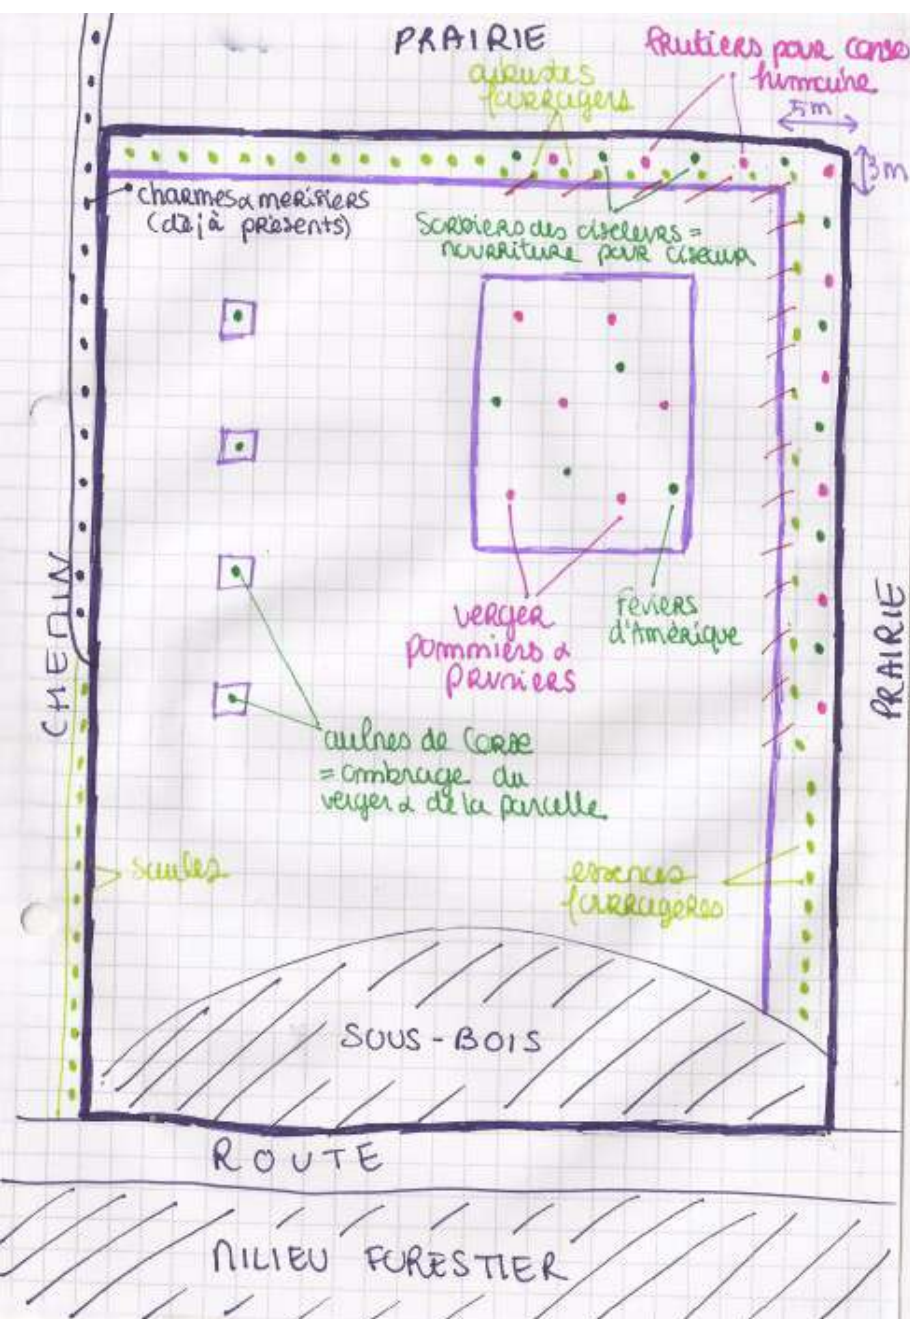 PRAIRIE
fruitiers pour conso
humaine
arbustes
fourragers
5m
3m
charmes & merisiers
(déjà présents)
Sorbiers des oiseleurs =
nourriture pour oiseaux
CHEMIN
verger
pommiers &
pruniers
Féviers
d'Amérique
PRAIRIE
aulnes de Corse
= ombrage du
verger & de la parcelle
saules
essences
fourragères
SOUS-BOIS
ROUTE
MILIEU FORESTIER